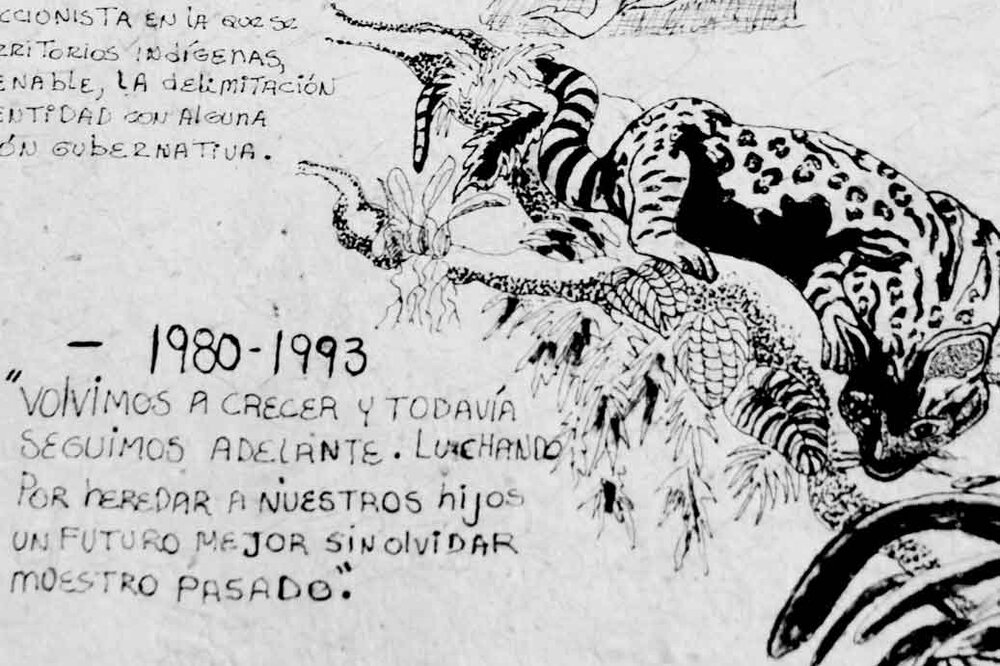 CCIONISTA EN LA QUE SE
RRITORIOS INDÍGENAS,
ENABLE, LA delimitación
ENTIDAD CON ALGUNA
ÓN GUBERNATIVA.
- 1980-1993
"VOLVIMOS A CRECER Y TODAVÍA
SEGUIMOS ADELANTE. LUCHANDO
POR hEREDAR A NUESTROS hijos
UN FUTURO MEJOR SIN OLVIDAR
NUESTRO PASADO."